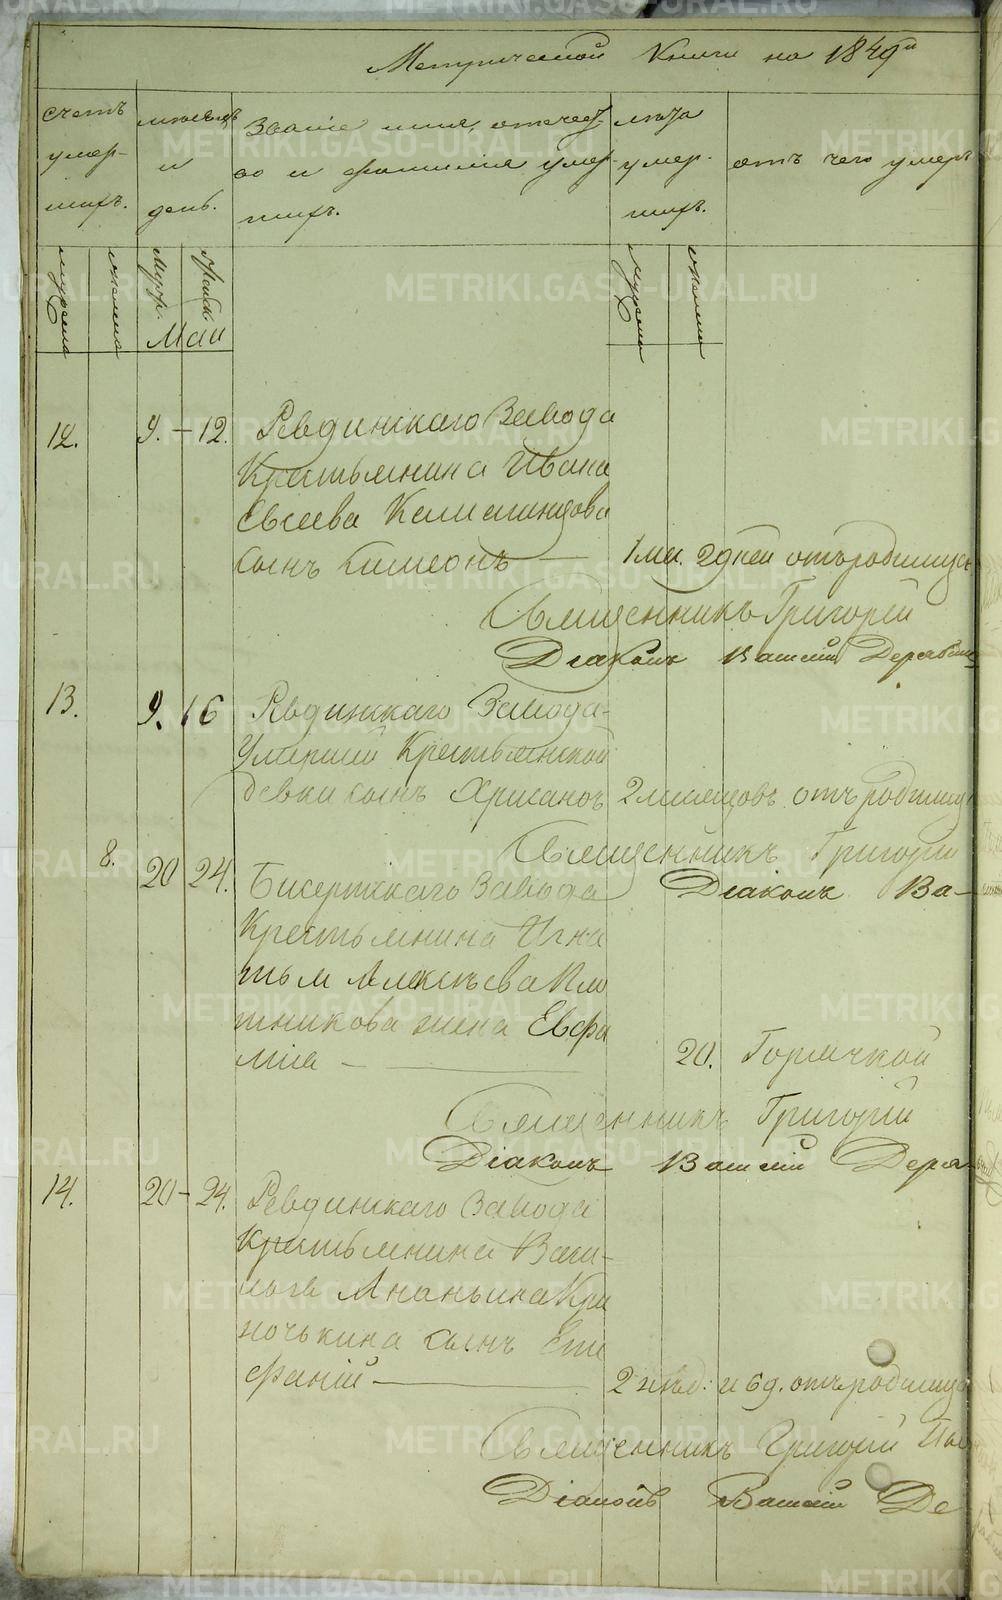 Метрической Книги на 1849й
счетъ умер- шихъ.
месяцъ и день.
Звание имя, отечест- во и фамилия умер- шихъ.
лета умер- шихъ.
отъ чего умеръ
мужеска
женска
Мер.
Погреб.
мужеска
женска
Маи
12. 9. – 12. Ревдинскаго Завода
Крестьянина Ивана
Евсеева
сынъ Симеонъ — 1 ме. 2 дней отъ родимца
Священникъ Григорей
Діаконъ Василий Дерябинъ
13. 9. 16 Ревдинскаго Завода
Умершей Крестьянской
девки сынъ 2 месяцовъ отъ родимца
Священникъ Григорий
Діаконъ Ва-
8. 20 24. Бисертскаго Завода
Крестьянина Игна
тья Алексѣева Пло
тникова жена Евфи
мия — 20. Горячкой
Священникъ Григорій
Діаконъ Василій Деря-
14. 20 – 24. Ревдинскаго Завода
Крестьянина Васи-
лья Ананьина Кри
ночькина сынъ Епи
фаній — 2 нѣд: и 6 д. отъ родимца
Священникъ Григорий По
Діаконъ Василій Де
METRIKI.GASO-URAL.RU